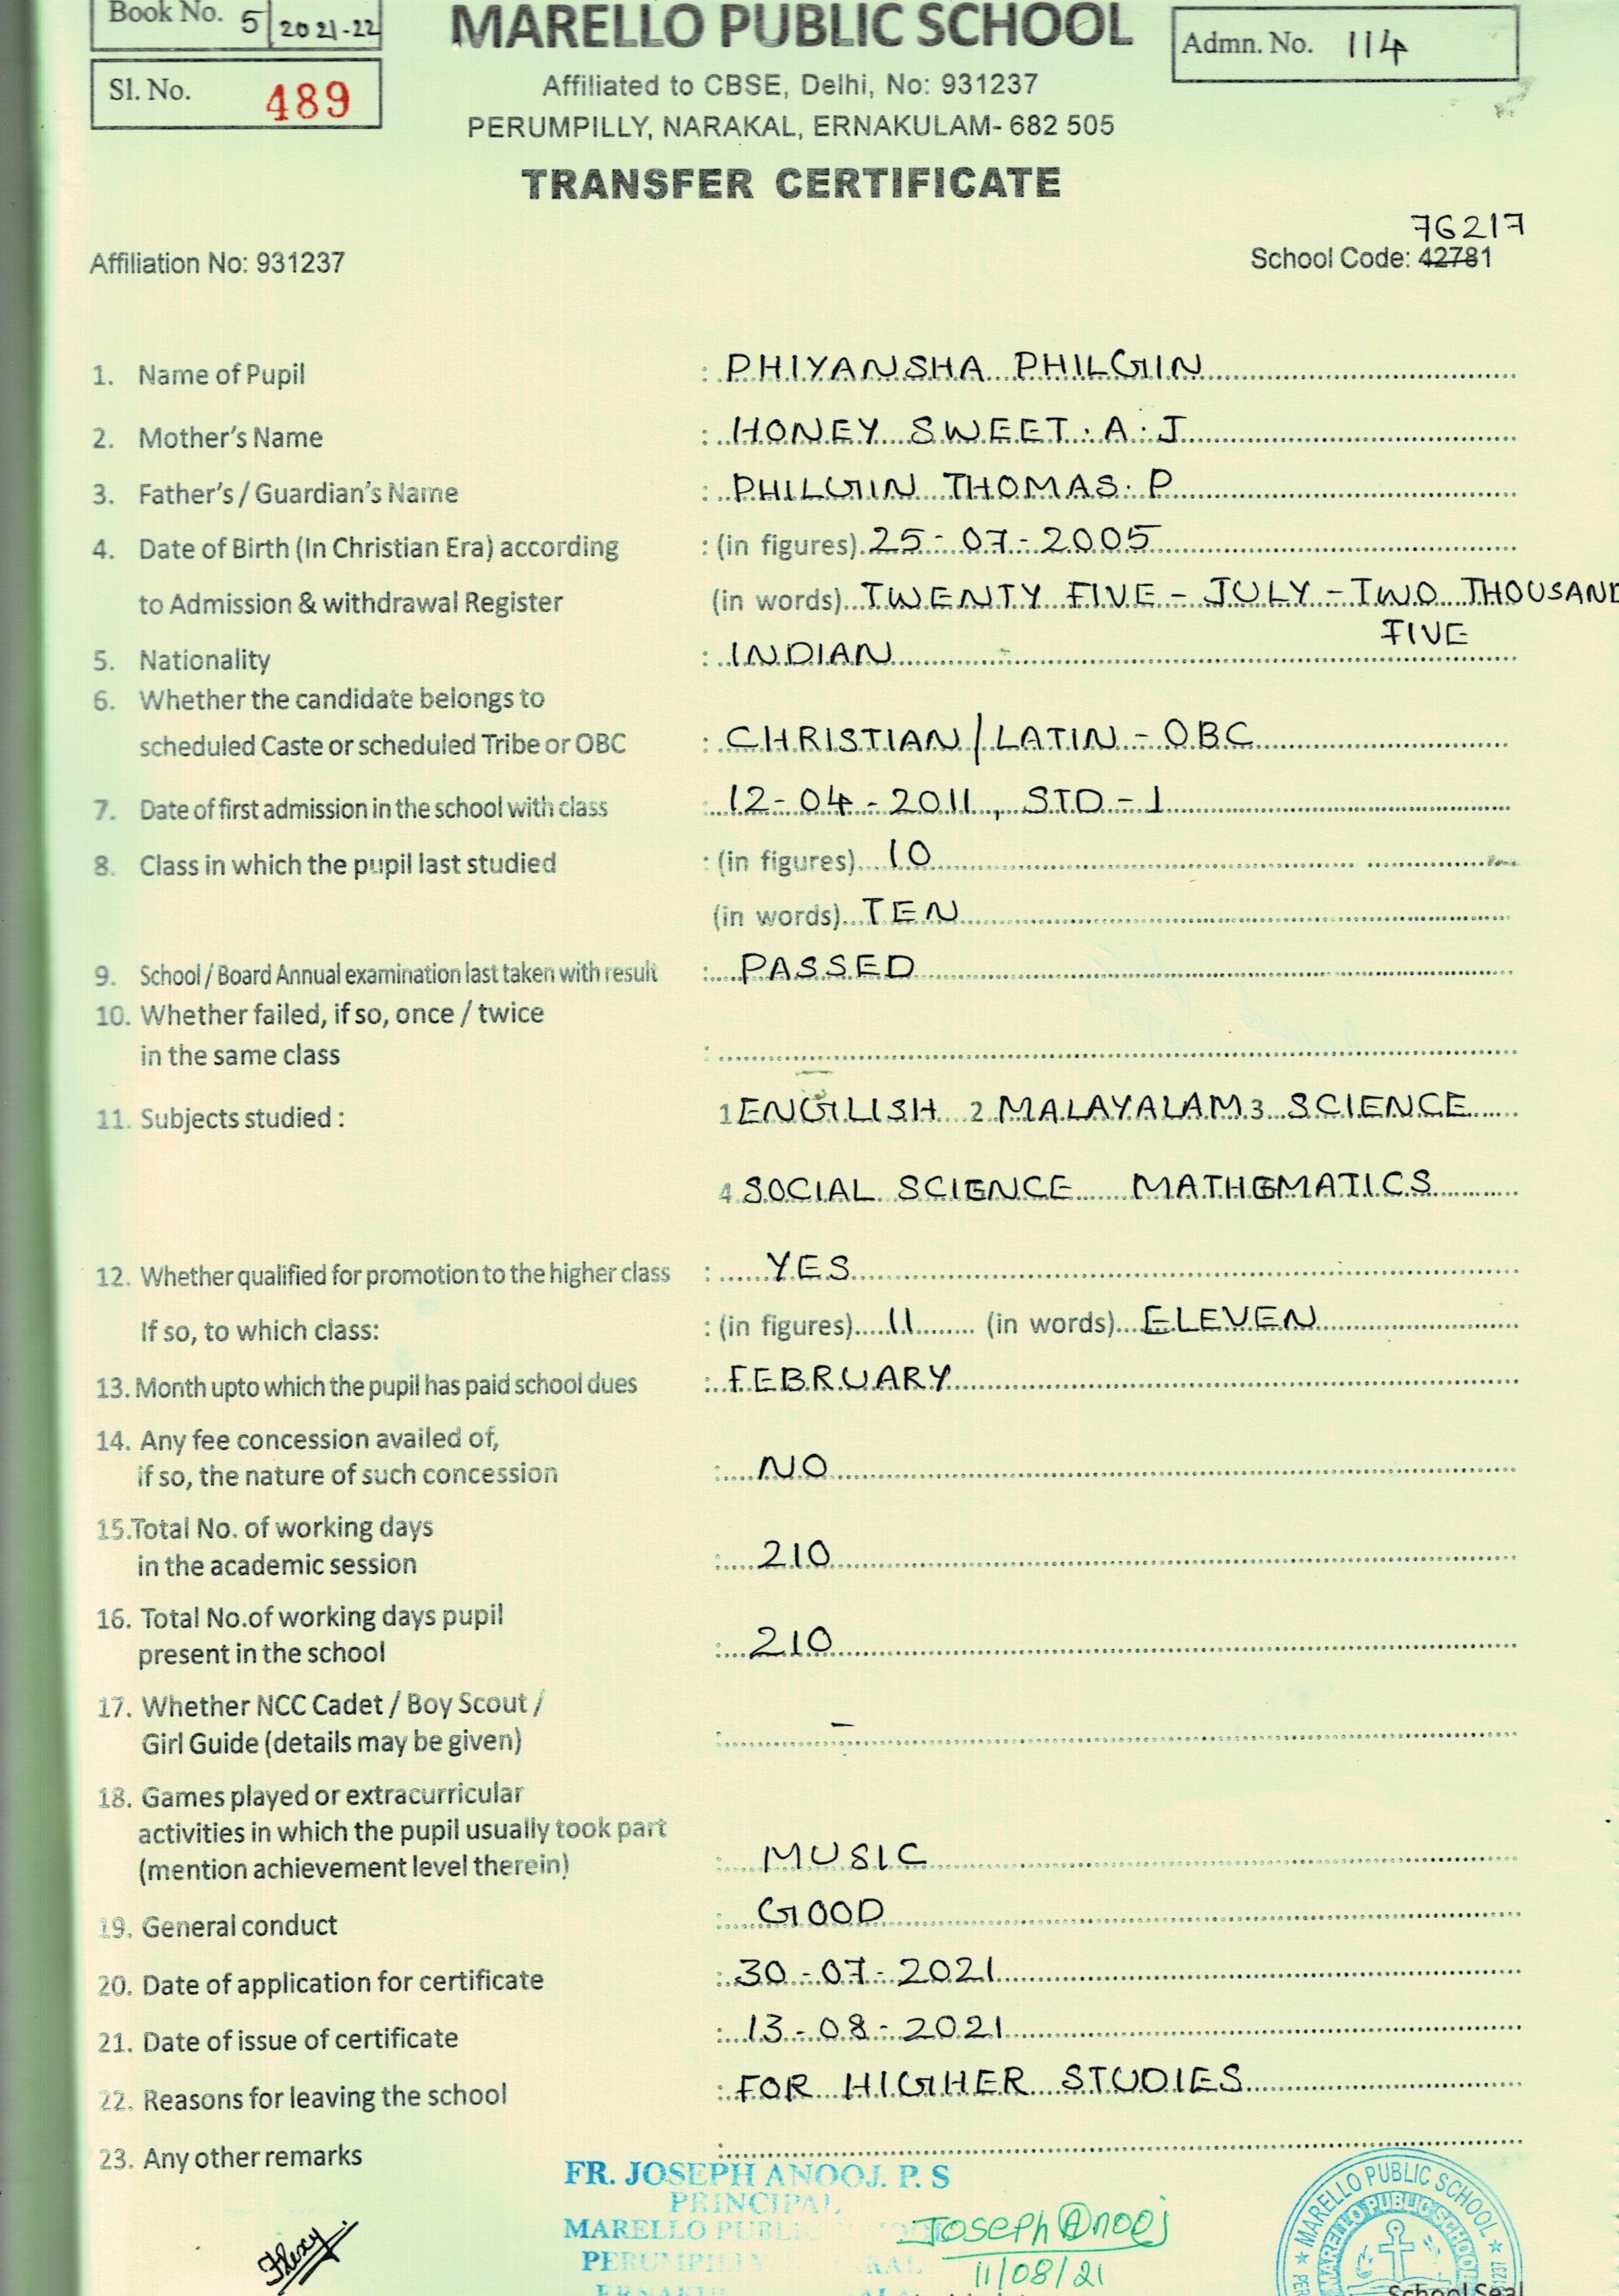 Book No. 5/2021-22
MARELLO PUBLIC SCHOOL
Admn. No. 114
Sl. No. 489
Affiliated to CBSE, Delhi, No: 931237
PERUMPILLY, NARAKAL, ERNAKULAM- 682 505
TRANSFER CERTIFICATE
76217
Affiliation No: 931237 School Code: 42781
1. Name of Pupil : PHIYANSHA PHILGIN
2. Mother's Name : HONEY SWEET. A. J
3. Father's / Guardian's Name : PHILGIN THOMAS. P
4. Date of Birth (In Christian Era) according : (in figures) 25-07-2005
to Admission & withdrawal Register (in words) TWENTY FIVE - JULY - TWO THOUSAND
FIVE
5. Nationality : INDIAN
6. Whether the candidate belongs to
scheduled Caste or scheduled Tribe or OBC : CHRISTIAN/LATIN - OBC
7. Date of first admission in the school with class : 12-04-2011, STD-1
8. Class in which the pupil last studied : (in figures) 10
(in words) TEN
9. School / Board Annual examination last taken with result : PASSED
10. Whether failed, if so, once / twice
in the same class :
11. Subjects studied : 1 ENGLISH 2 MALAYALAM 3 SCIENCE
4 SOCIAL SCIENCE MATHEMATICS
12. Whether qualified for promotion to the higher class : YES
If so, to which class: : (in figures) 11 (in words) ELEVEN
13. Month upto which the pupil has paid school dues : FEBRUARY
14. Any fee concession availed of,
if so, the nature of such concession : NO
15. Total No. of working days
in the academic session : 210
16. Total No.of working days pupil
present in the school : 210
17. Whether NCC Cadet / Boy Scout /
Girl Guide (details may be given) : -
18. Games played or extracurricular
activities in which the pupil usually took part
(mention achievement level therein) : MUSIC
19. General conduct : GOOD
20. Date of application for certificate : 30-07-2021
21. Date of issue of certificate : 13-08-2021
22. Reasons for leaving the school : FOR HIGHER STUDIES
23. Any other remarks
FR. JOSEPH ANOOJ. P. S
PRINCIPAL
MARELLO PUBLIC
Joseph Anooj
11/08/21
MARELLO PUBLIC SCHOOL
MARELLO PUBLIC SCHOOL
School Seal